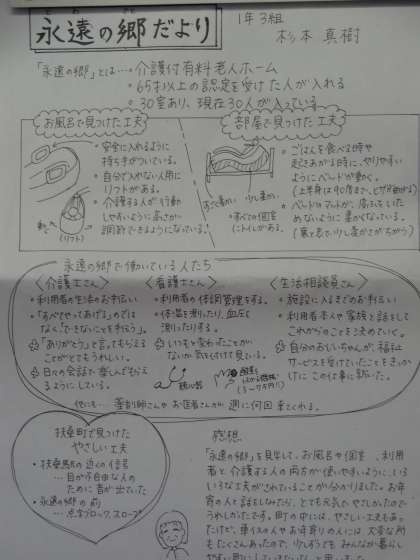 永遠の郷だより
1年3組
杉本 真樹
「永遠の郷」とは…・介護付有料老人ホーム
・65才以上の認定を受けた人が入れる
・30室あり、現在30人が入っている
お風呂で見つけた工夫
・安全に入れるように
持ち手がついている。
・自分で入れない人用に
リフトがある。
・介護する人が行動
しやすいように高さが
調節できるようになっている。
(リフト)
部屋で見つけた工夫
・ごはんを食べる時や
起きあがる時に、やりやすい
ようにベッドが動く。
・ベッドのマットが、床ずれしな
いように柔かくなっている。
(裏と表で少し柔かさがちがう)
すごく柔かい 少し柔かい
・すべての個室
にトイレがある。
永遠の郷で働いている人たち
〈介護士さん〉
・利用者の生活のお手伝い
・「すべてやってあげる」のでは
なく、「できないことを手伝う」。
☆「ありがとう」と言ってもらえる
ことがとてもうれしい。
☆日々の会話で楽しんでもらえ
るようにしている。
〈看護士さん〉
・利用者の体調管理をする。
・体温を測ったり、血圧を
測ったりする。
☆いつもと変わったことが
ないか気を付けて見ている。
聴診器
〈生活相談員さん〉
・施設に入るまでのお手伝い
・利用者本人や家族と話をして
これからのことを決めていく。
☆自分のおじいちゃんが、福祉
サービスを受けていたことをきっか
けにこの仕事に就いた。
他にも… 薬剤師さんやお医者さんが、週に何回か来てくれる。
扶桑町で見つけた
やさしい工夫
・扶桑駅の近くの信号
…目が不自由な人の
ために音が出ていた
・永遠の郷の前
…点字ブロック、スロープ
感想
「永遠の郷」を見学して、お風呂や個室、利用
者と介護する人の両方が使いやすいように、いろ
いろな工夫がされていることが分かりました。お年
寄の人と話をしてみたら、とても元気でやさしかったので
うれしかったです。町の中には、やさしい工夫もあっ
たけど、車イスの人やお年寄りの人には大変な所
もたくさんあったので、少しずつでも、みんなが暮らし